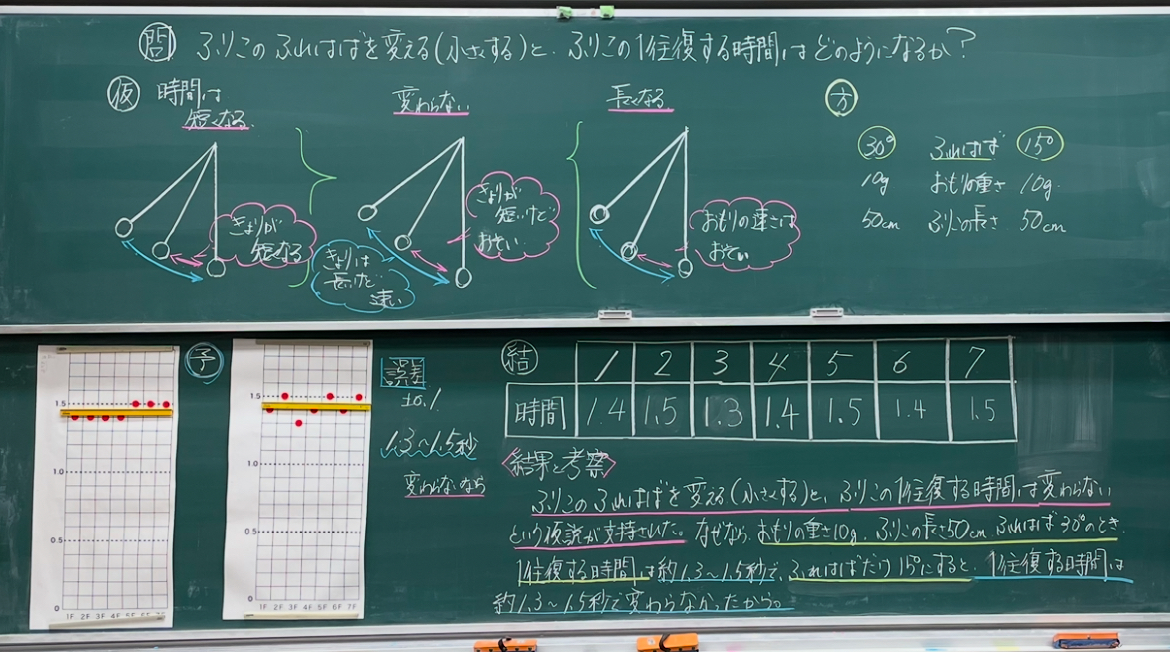 問 ふりこのふれはばを変える(小さくする)と、ふりこの1往復する時間はどのようになるか?
仮 時間は
短くなる
変わらない
長くなる
きょりが
短くなる
きょりは
長いけど
速い
きょりが
短いけど
おそい
おもりの速さは
おそい
方
30° ふれはば 15°
10g おもりの重さ 10g
50cm ふりこの長さ 50cm
予
1.5
1.0
0.5
0
1F 2F 3F 4F 5F 6F 7F
1.5
1.0
0.5
0
1F 2F 3F 4F 5F 6F 7F
誤差
±0.1
1.3〜1.5秒
変わらないなら
結
1 2 3 4 5 6 7
時間 1.4 1.5 1.3 1.4 1.5 1.4 1.5
〈結果と考察〉
ふりこのふれはばを変える(小さくする)と、ふりこの1往復する時間は変わらない
という仮説が支持された。なぜなら、おもりの重さ10g、ふりこの長さ50cm、ふれはば30°のとき、
1往復する時間は約1.3〜1.5秒で、ふれはばだけ15°にすると、1往復する時間は
約1.3〜1.5秒で変わらなかったから。